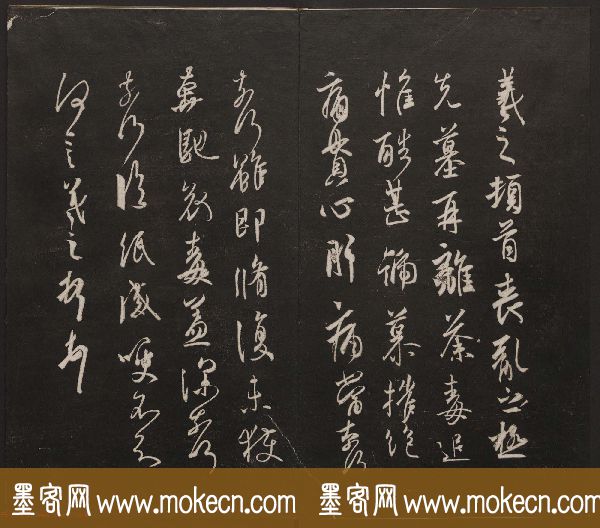 羲之頓首喪亂之極
先墓再離荼毒追
惟酷甚號慕摧絕
痛貫心肝痛當奈
奈何雖即脩復未獲
奔馳哀毒益深奈何
奈何臨紙感哽不知
何言羲之頓首
墨客网 www.mokecn.com 墨客网 www.mokecn.com